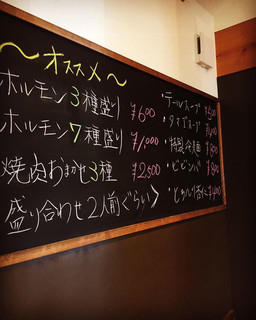 ～オススメ～
ホルモン3種盛り ¥600
ホルモン7種盛り ¥1,000
焼肉おまかせ3種 ¥2,500
盛り合わせ2人前ぐらい〉
・テールスープ
・タマゴスープ
・特製冷麺
・ビビンバ